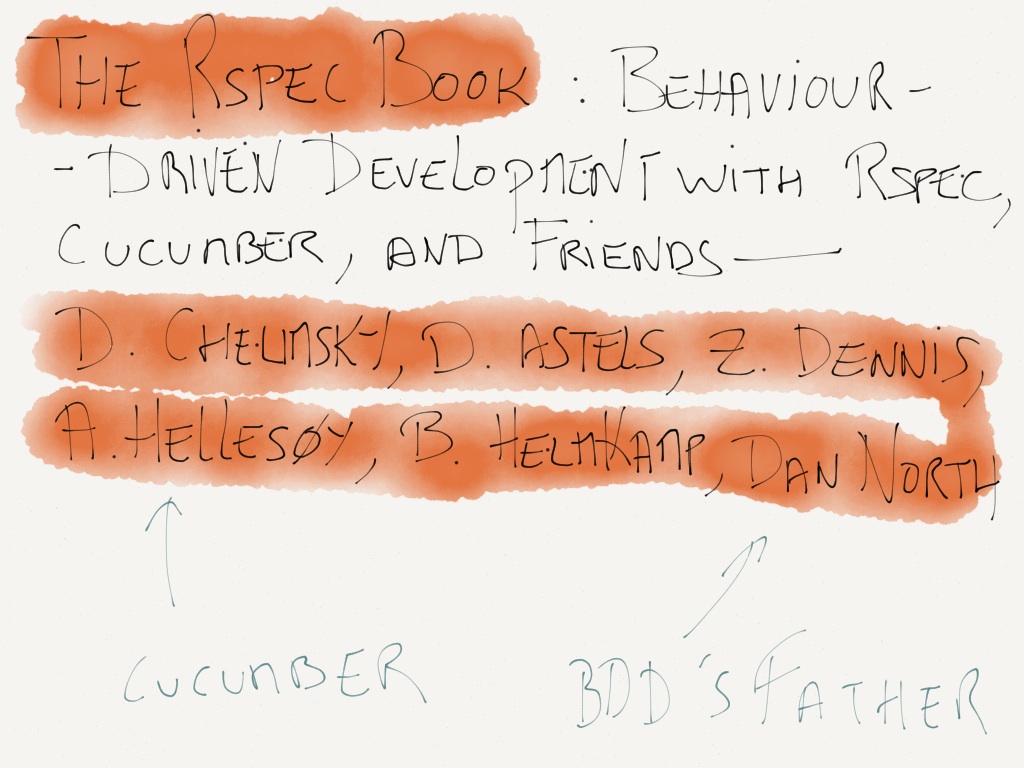 THE RSPEC BOOK : BEHAVIOUR -
- DRIVEN DEVELOPMENT WITH RSPEC,
CUCUMBER, AND FRIENDS —
D. CHELIMSKY, D. ASTELS, Z. DENNIS,
A. HELLESØY, B. HELMKAMP, DAN NORTH
CUCUMBER
BDD'S FATHER